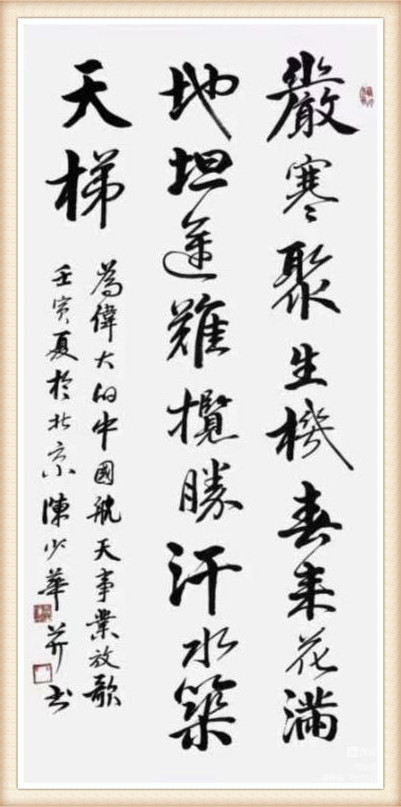 嚴寒聚生機春来花滿
地坦途難攬勝汗水築
天梯
為偉大的中國航天事業放歌
壬寅夏於北京陳少華并书